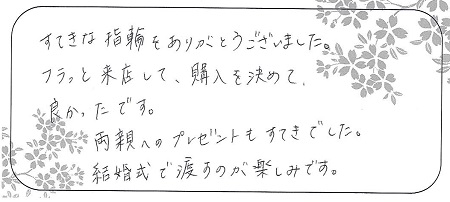 すてきな指輪をありがとうございました。
フラっと来店して、購入を決めて
良かったです。
両親へのプレゼントもすてきでした。
結婚式で渡すのが楽しみです。